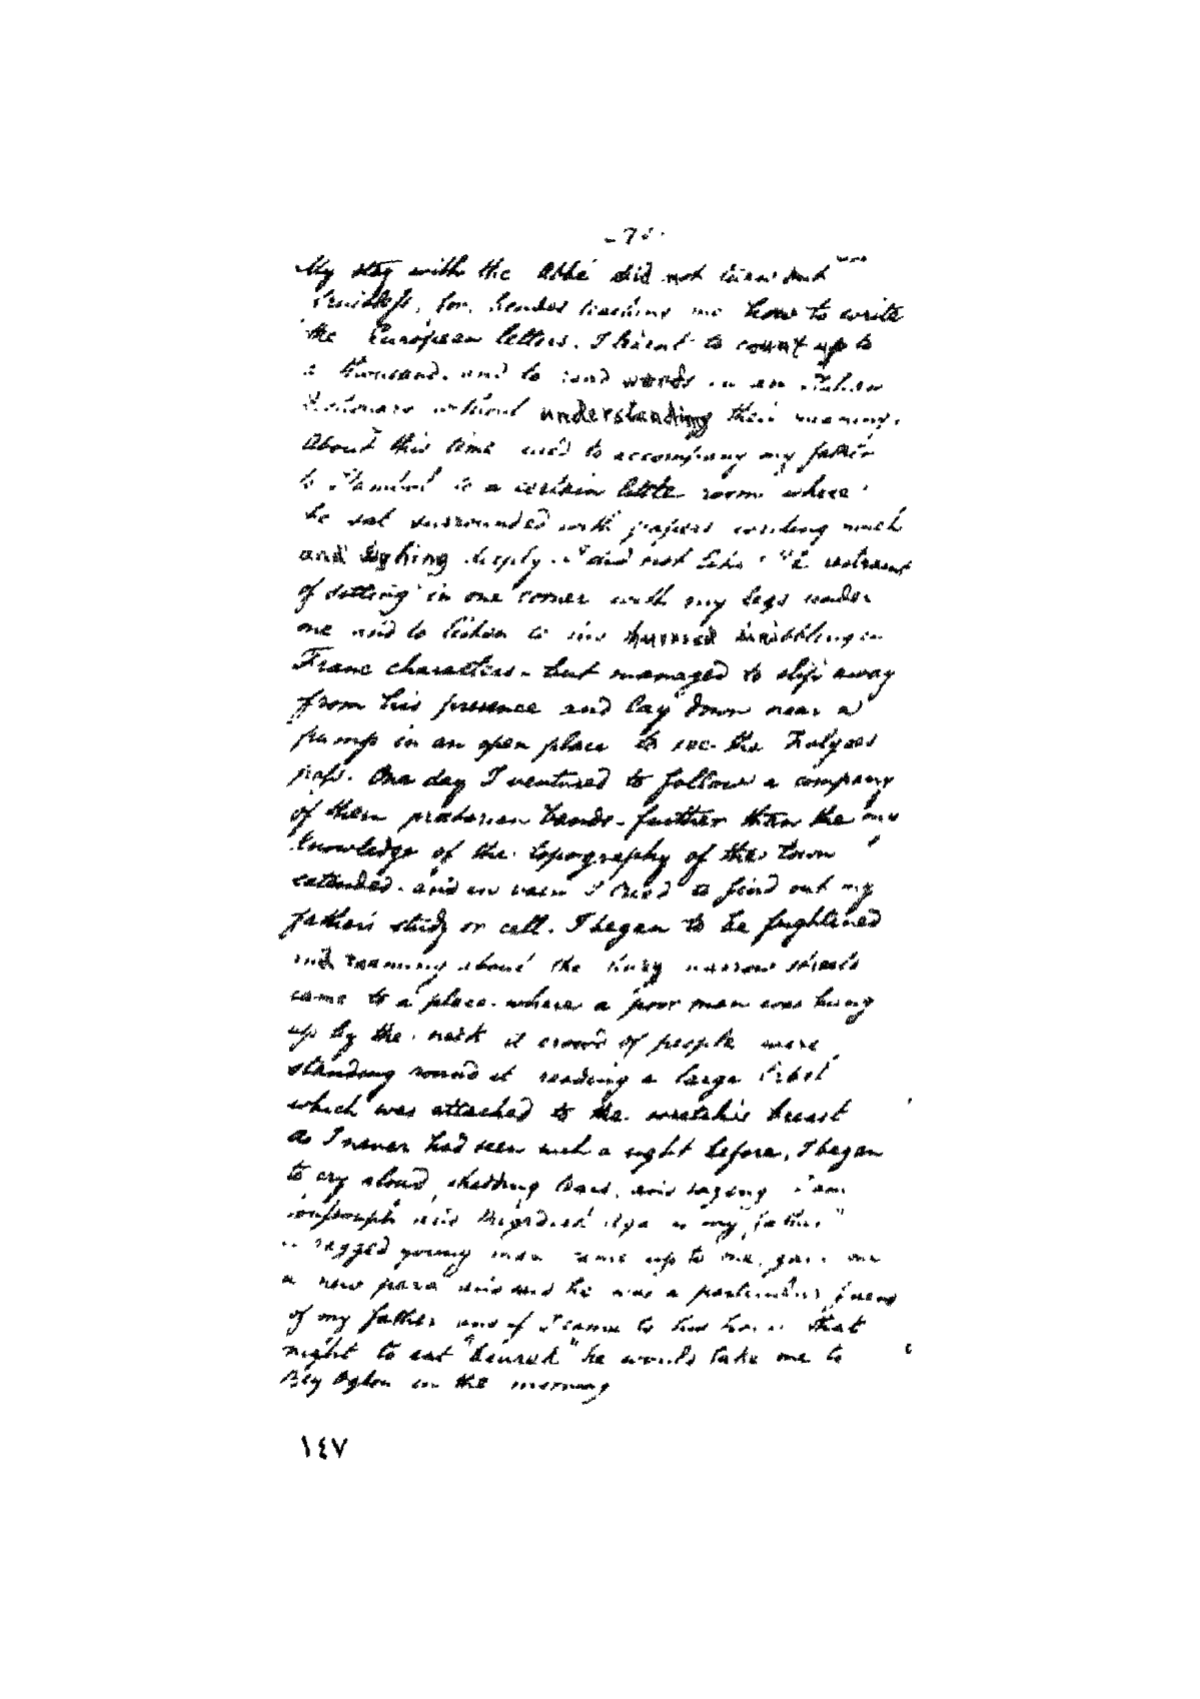 My stay with the Abbé did not turn out
fruitless, for, besides teaching me how to write
the European letters. I learnt to count up to
a thousand. and to read words in an Italian
without understanding their meaning.
About this time used to accompany my father
to Stambul to a certain little room where
he sat surrounded with papers writing much
and sighing deeply. I did not like the restraint
of sitting in one corner with my legs under
me and to listen to his hurried scribbling in
Franc characters - but managed to slip away
from his presence and lay down near a
pump in an open place to see the
pass. One day I ventured to follow a company
of them pretorian bands - further than the my
knowledge of the topography of the town
extended. and in vain I tried to find out my
father's study or cell. I began to be frightened
and roaming about the busy narrow streets
came to a place where a poor man was hung
up by the neck a crowd of people were
standing round it reading a large label
which was attached to the wretch's breast
as I never had seen such a sight before, I began
to cry aloud, shedding tears, and saying I am
and Aga is my father"
a ragged young man came up to me, gave me
a new para and said he was a particular friend
of my father and if I came to his house that
night to eat "beurek" he would take me to
Bey Oglou in the morning
١٤٧